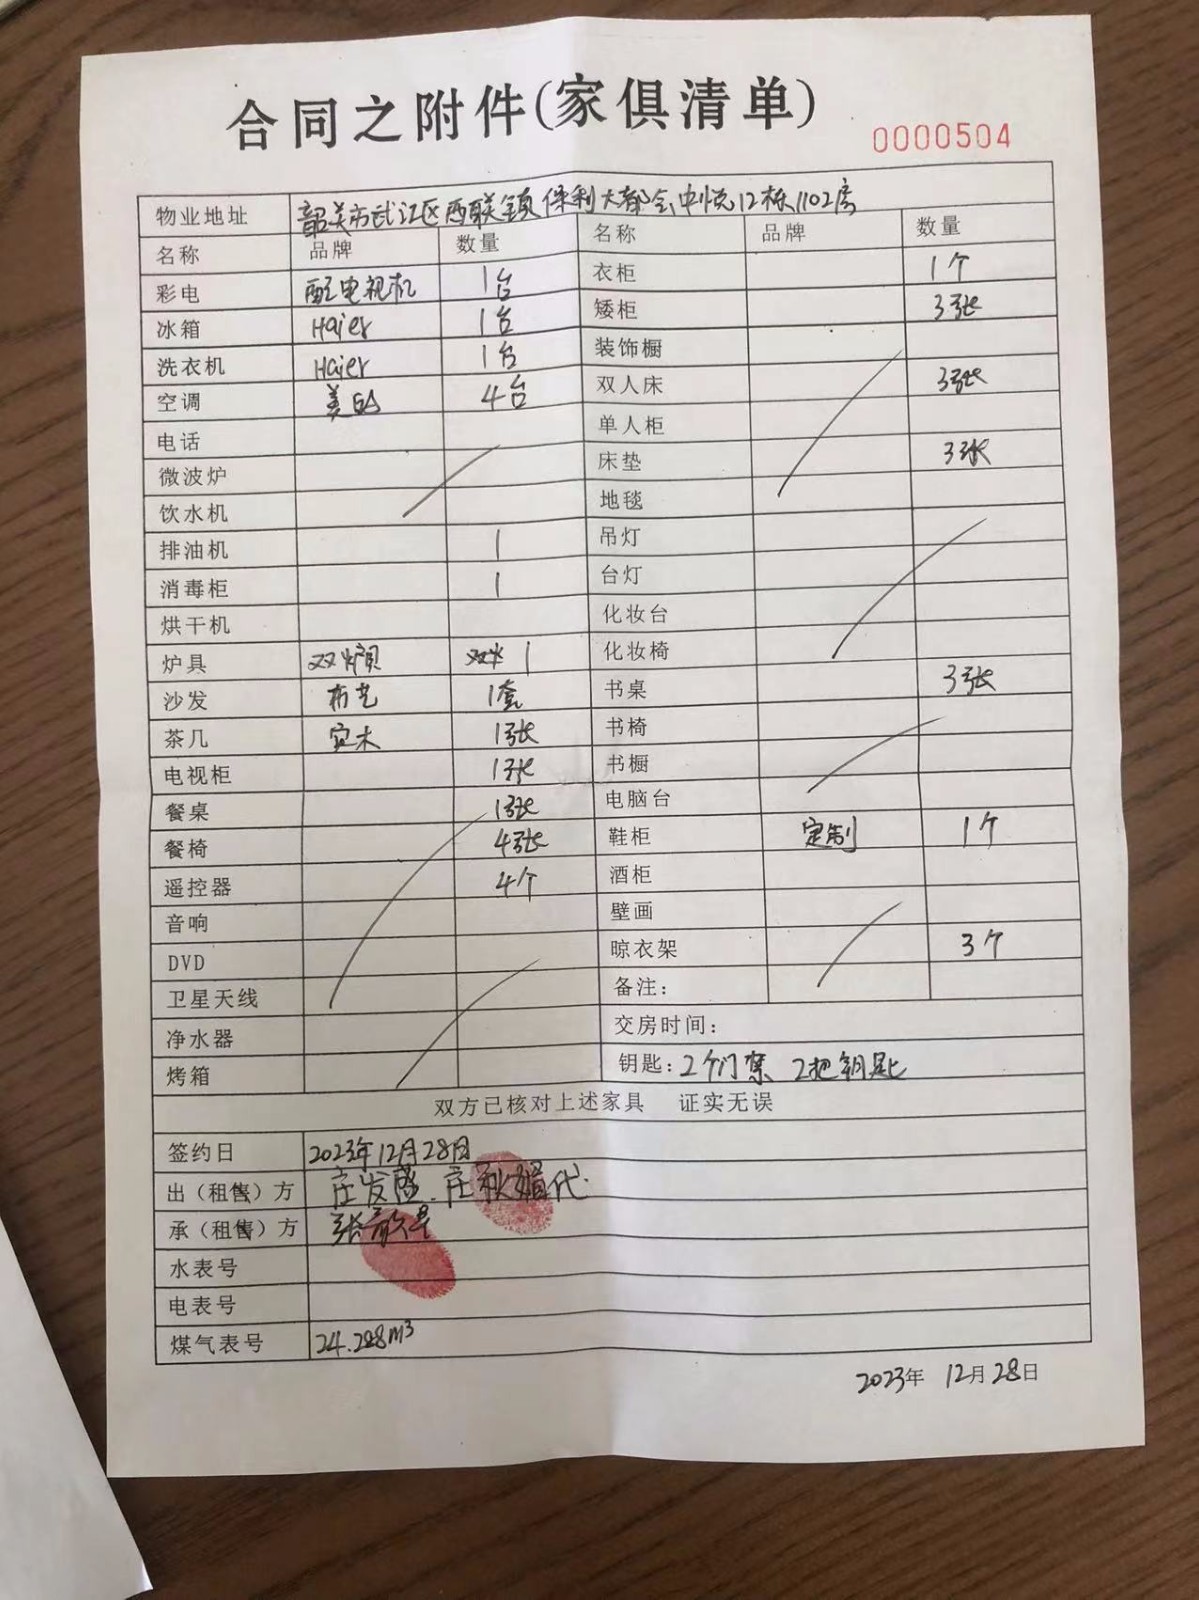 合同之附件(家俱清单)
0000504
物业地址 韶关市武江区西联镇保利大都会中悦12栋1102房
名称 品牌 数量 名称 品牌 数量
彩电 电视机 1台 衣柜 1个
冰箱 Haier 1台 矮柜 3张
洗衣机 Haier 1台 装饰橱
空调 美的 4台 双人床 3张
电话 单人柜
微波炉 床垫 3张
饮水机 地毯
排油机 1 吊灯
消毒柜 1 台灯
烘干机 化妆台
炉具 双炉 1 化妆椅
沙发 布艺 1套 书桌 3张
茶几 实木 1张 书椅
电视柜 1张 书橱
餐桌 1张 电脑台
餐椅 4张 鞋柜 定制 1个
遥控器 4个 酒柜
音响 壁画
DVD 晾衣架 3个
卫星天线 备注:
净水器 交房时间:
烤箱 钥匙: 2个门禁 2把钥匙
双方已核对上述家具 证实无误
签约日 2023年12月28日
出(租售)方 庄发盛.庄秋媚代
承(租售)方 张
水表号
电表号
煤气表号 24.288m³
2023年 12月28日